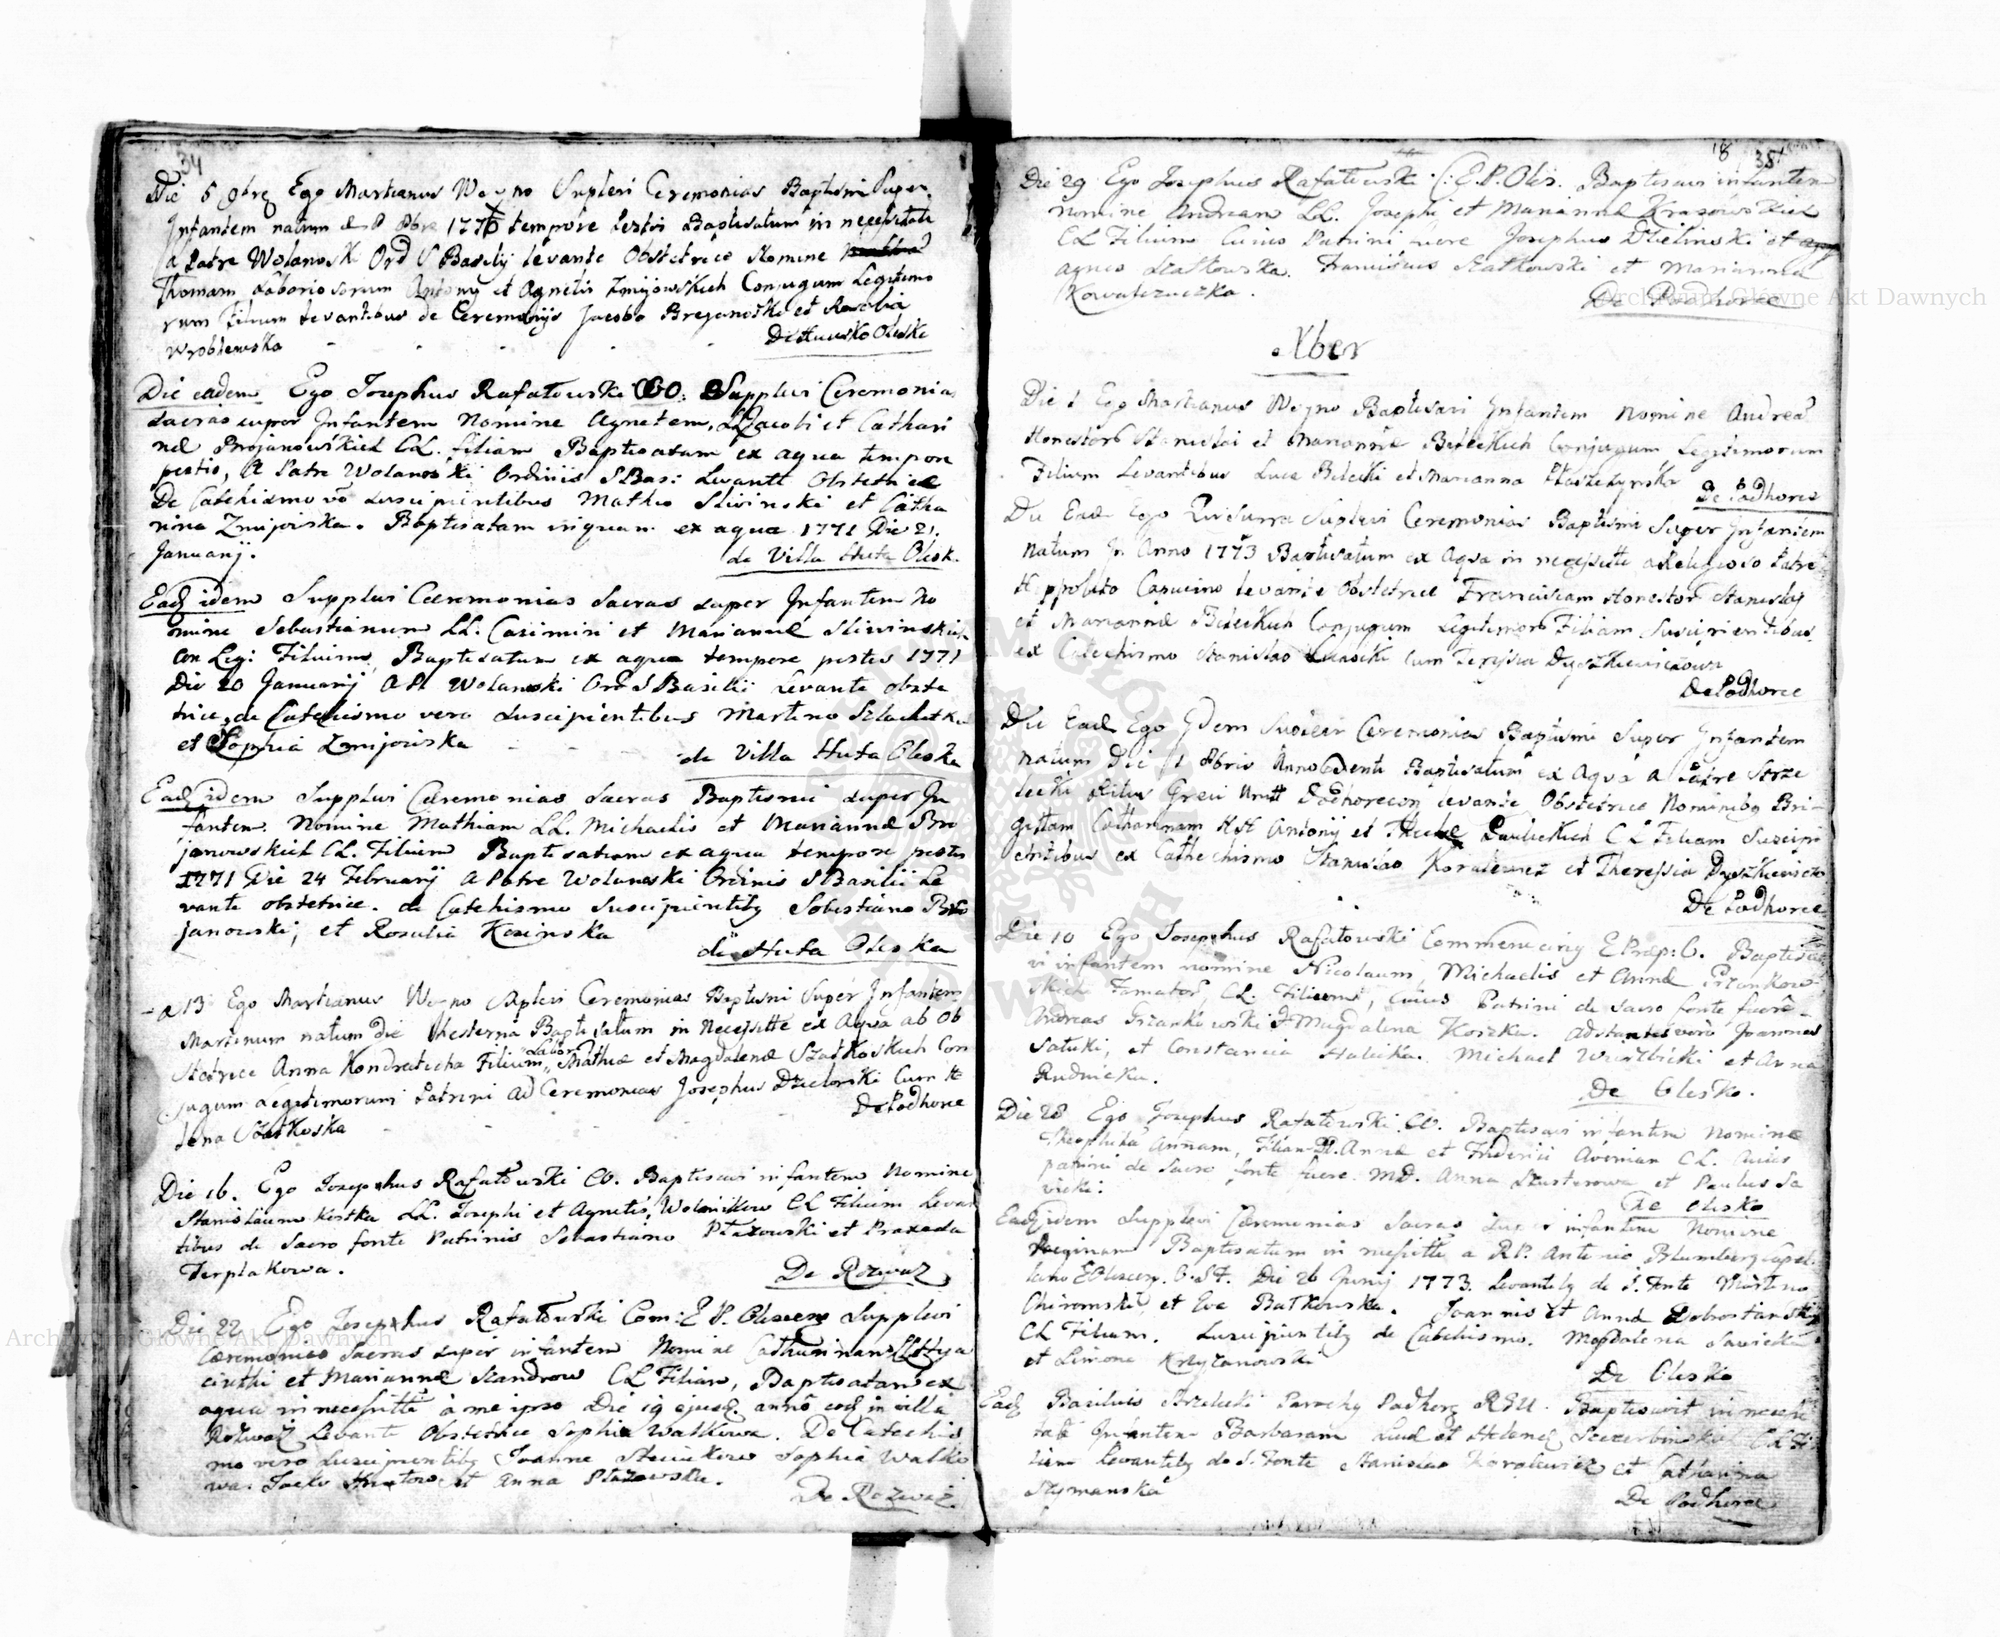 34
Die 5 9bris Ego Martianus Woyno Supleri Ceremonias Baptismi Super
Infantem natum d. 8 8bre 1770 tempore Baptisatum in necessitate
a Patre Wolanoski Ord S Basilij levante Obstetrice Nomine
Thomam Laboriosorum Antony et Agnetis Zmijowskich Conjugum Legitimo
rum Filium Levantibus de Ceremonijs Jacobo Brejanoski et Rosalia
Wroblewska
De Huwsko Oleska
Die eadem Ego Josephus Rafałowski CO: Supplevi Ceremonias
sacras super Infantem Nomine Agnetem, LL Jacobi et Cathari
næ Brojanowskich CL. filiam Baptisatam ex aqua tempore
pestis, A Patre Wolanoskii Ordinis S Basi: Levante Obstetrice
De Catechismo vo suscipientibus Mathio Sliwinski et Catha
rina Zmijoiska. Baptisatam inquam ex aqua 1771 Die 21.
Januarij.
de Villa Huta Olesk.
Ead idem Supplevi Cæremonias Sacras super Infantem No
mine Sebastianum LL. Casimiri et Mariannæ Sliwinskich
Con Leg: Filium, Baptisatum ex aqua tempore pestis 1771
Die 20 Januarij A P. Wolanski Ord S Basilii Levante obste
trice, de Catechismo vero suscipientibus Martino Szlachetka
et Sophia Zmijoiska
de Villa Huta Oleska
Ead idem Supplevi Cæremonias Sacras Baptismi super In
fantem Nomine Mathiam LL. Michaelis et Mariannæ Bro
janowskich CL. Filium Baptisatum ex aqua tempore pestis
1771 Die 24 Februarij A Patre Wolanoski Ordinis S Basilii Le
vante obstetrice. de Catechismo Suscipientibus Sebastiano Bro
janowski, et Rosalia Kosinska
de Huta Oleska
a 13 Ego Martianus Woyno Supleri Ceremonias Baptismi Super Infantem
Martinum natum die Hesterna Baptisatum in Necessitte ex Aqua ab Ob
stetrice Anna Kondratecha Filium Labor Mathiæ et Magdalenæ Szatkoskich Con
jugum Legitimorum Patrini ad Ceremonias Josephus Dzielinski Cum He
lena Szatkoska
De Podhorce
Die 16. Ego Josephus Rafałowski CO. Baptisavi infantem Nomine
Stanislaum Kostka LL. Josephi et Agnetis, Wolanikow CL Filium Levan
tibus de Sacro fonte Patrinis Sebastiano Płazowski et Praxeda
Terplakowa.
De Rozwaz
Die 22 Ego Josephus Rafałowski Com: E P. Olescens Supplevi
Ceremonias Sacras super infantem Nomine Catharinam LL Hya
cinthi et Mariannæ Skandrow CL Filiam, Baptisatam ex
aqua in necessitte à me ipso Die 19 ejusd. anno eod in villa
Rozwaz Levante Obstetrice Sophia Walkiwa. De Catechis
mo vero suscipientibus Joanne Sophia Walko
wa. et Anna Płazowska.
De Rozwaz
18 35
Die 29 Ego Josephus Rafałowski C: E. P. Oles. Baptisavi infantem
nomine Andream LL. Josephi et Mariannæ Krasowskich
CL Filium Cuius Patrini fuere Josephus Dzielinski et
agnes Szatkowska. Franciscus Szatkowski et Marianna
Kowalczuczka.
De Podhorce
Xber
Die 1 Ego Martianus Woyno Baptisavi Infantem Nomine Andreã
Honestor Stanislai et Mariannæ Beleckich Conjugum Legitimorum
Filium Levantibus Luca Belecki et Marianna
De Podhorce
Die Ead Ego Supleri Ceremonias Baptismi Super Infantem
natum In Anno 1773 Baptisatum ex Aqua in necessitte a Religioso Patre
Hyppolito Capucino levante Obstetrice Franciscam Honestor Stanislaj
et Mariannæ Beleckich Conjugum Legitimor Filiam Suscipientibus
ex Catechismo Stanislao cum Teressia Dyszkiewiczowa
De Podhorce
Die Ead Ego Idem Ceremonias Baptismi Super Infantem
natum Die 8bris Anno Baptisatum ex Aqua a Patre Strze
lecki Ritus Græci Podhorecen levante Obstetrice Nominibus Bri-
gittam Catharinam Antonij et Theclæ Pawlickich CL Filiam Suscipi
entibus ex Cathechismo Stanislao Koralewicz et Theressia Dyszkiewiczo
De Podhorce
Die 10 Ego Josephus Rafałowski Commend E Præp: O. Baptisa
vi infantem nomine Nicolaum, Michaelis et Annæ Grzankow
skich Famator CL. Filium, Cuius Patrini de Sacro fonte fuere
Andreas Grzankowski Magdalena Koszka. adstantes vero Joannes
Satuki, et Constancia Halicka. Michael et Anna
Rudnicka.
De Olesko.
Die 28 Ego Josephus Rafałowski CO. Baptisavi infantem Nomine
Theophila Annam, Filiam D. Annæ et Friderici Avenian CL. Cuius
patrini de Sacro fonte fuere MD. Anna Szusterowa et Paulus Sa
wicki.
De Olesko
Ead idem Supplevi Cæremonias Sacras super infantem Nomine
Reginam Baptisatam in necessitte a R.P. Antonio Blumberg Capel
lano EOlescen. Die 26 Junij 1773. Levantibus de S. Fonte Martino
Chiromski, et Eva Butkowska. Joannis et Annæ Dobrostanski
CL Filiam. Suscipientibus de Catechismo. Magdalena Sawicka
et Simone Krzyzanowski
De Olesko
Ead Basilius Strzelecki Parochus Podhorc RGU. Baptisavit in necessi
tate Infantem Barbaram Lucæ et Helenæ Szczerbinskich CL Fi
liam Levantibus de S. Fonte Stanislao Koralewicz et Catharina
Szymanska
De Podhorce
Archiwum Główne Akt Dawnych
Archiwum Główne Akt Dawnych